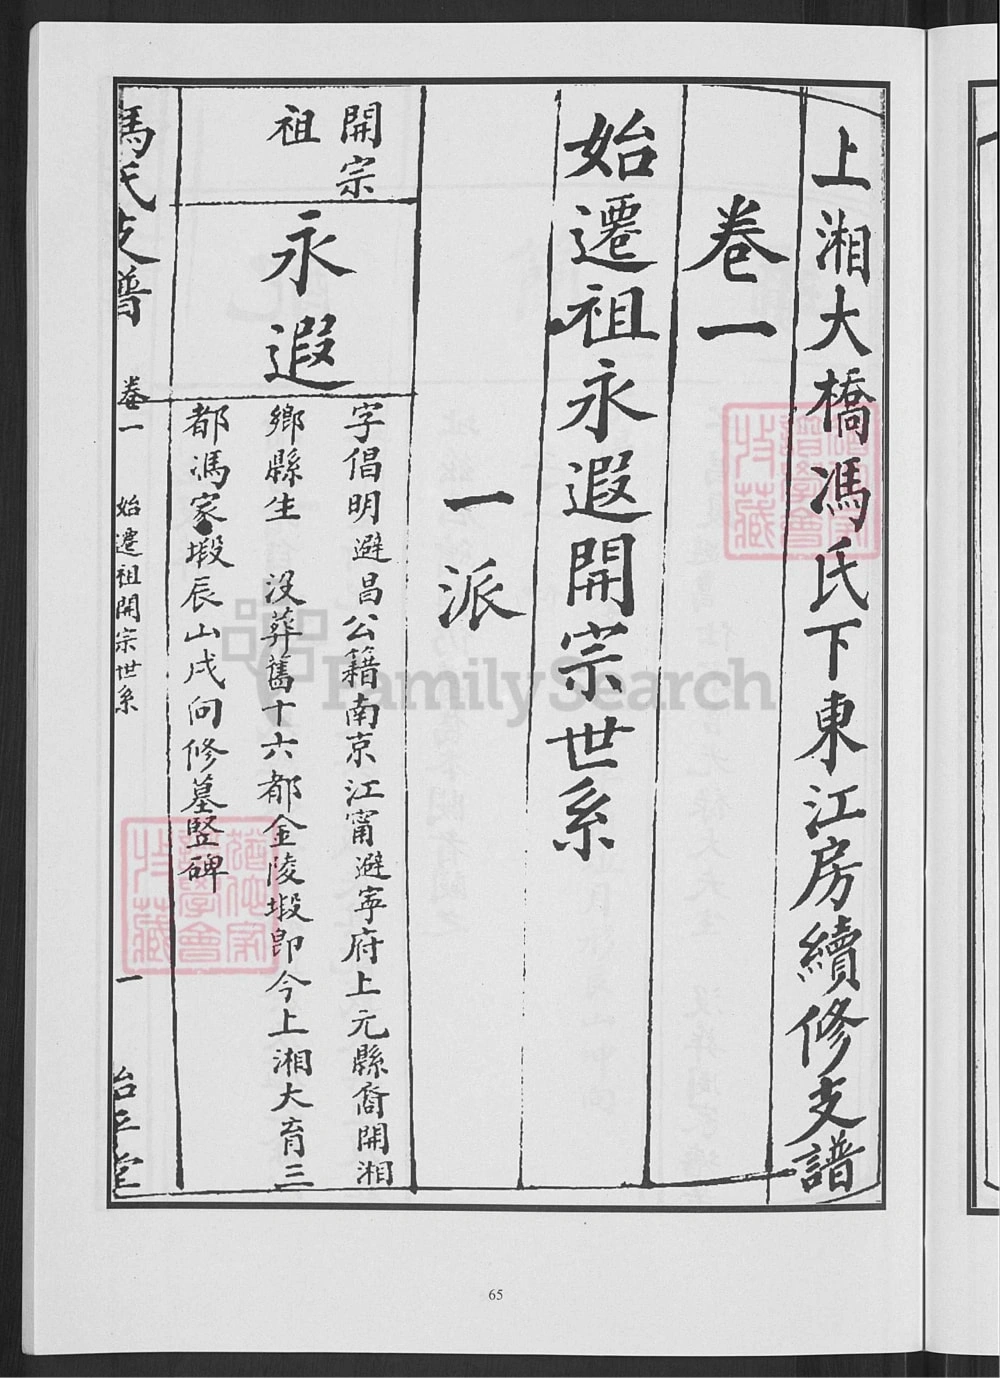 上湘大橋馮氏下東江房續修支譜
卷一
始遷祖永遐開宗世系
一派
開宗
祖
永遐
字倡明避昌公籍南京江甯避寧府上元縣裔開湘
鄉縣生 沒葬舊十六都金陵塅即今上湘大育三
都馮家塅辰山戌向修墓竪碑
馮氏支譜 卷一 始遷祖開宗世系 一 治平堂
65
FamilySearch